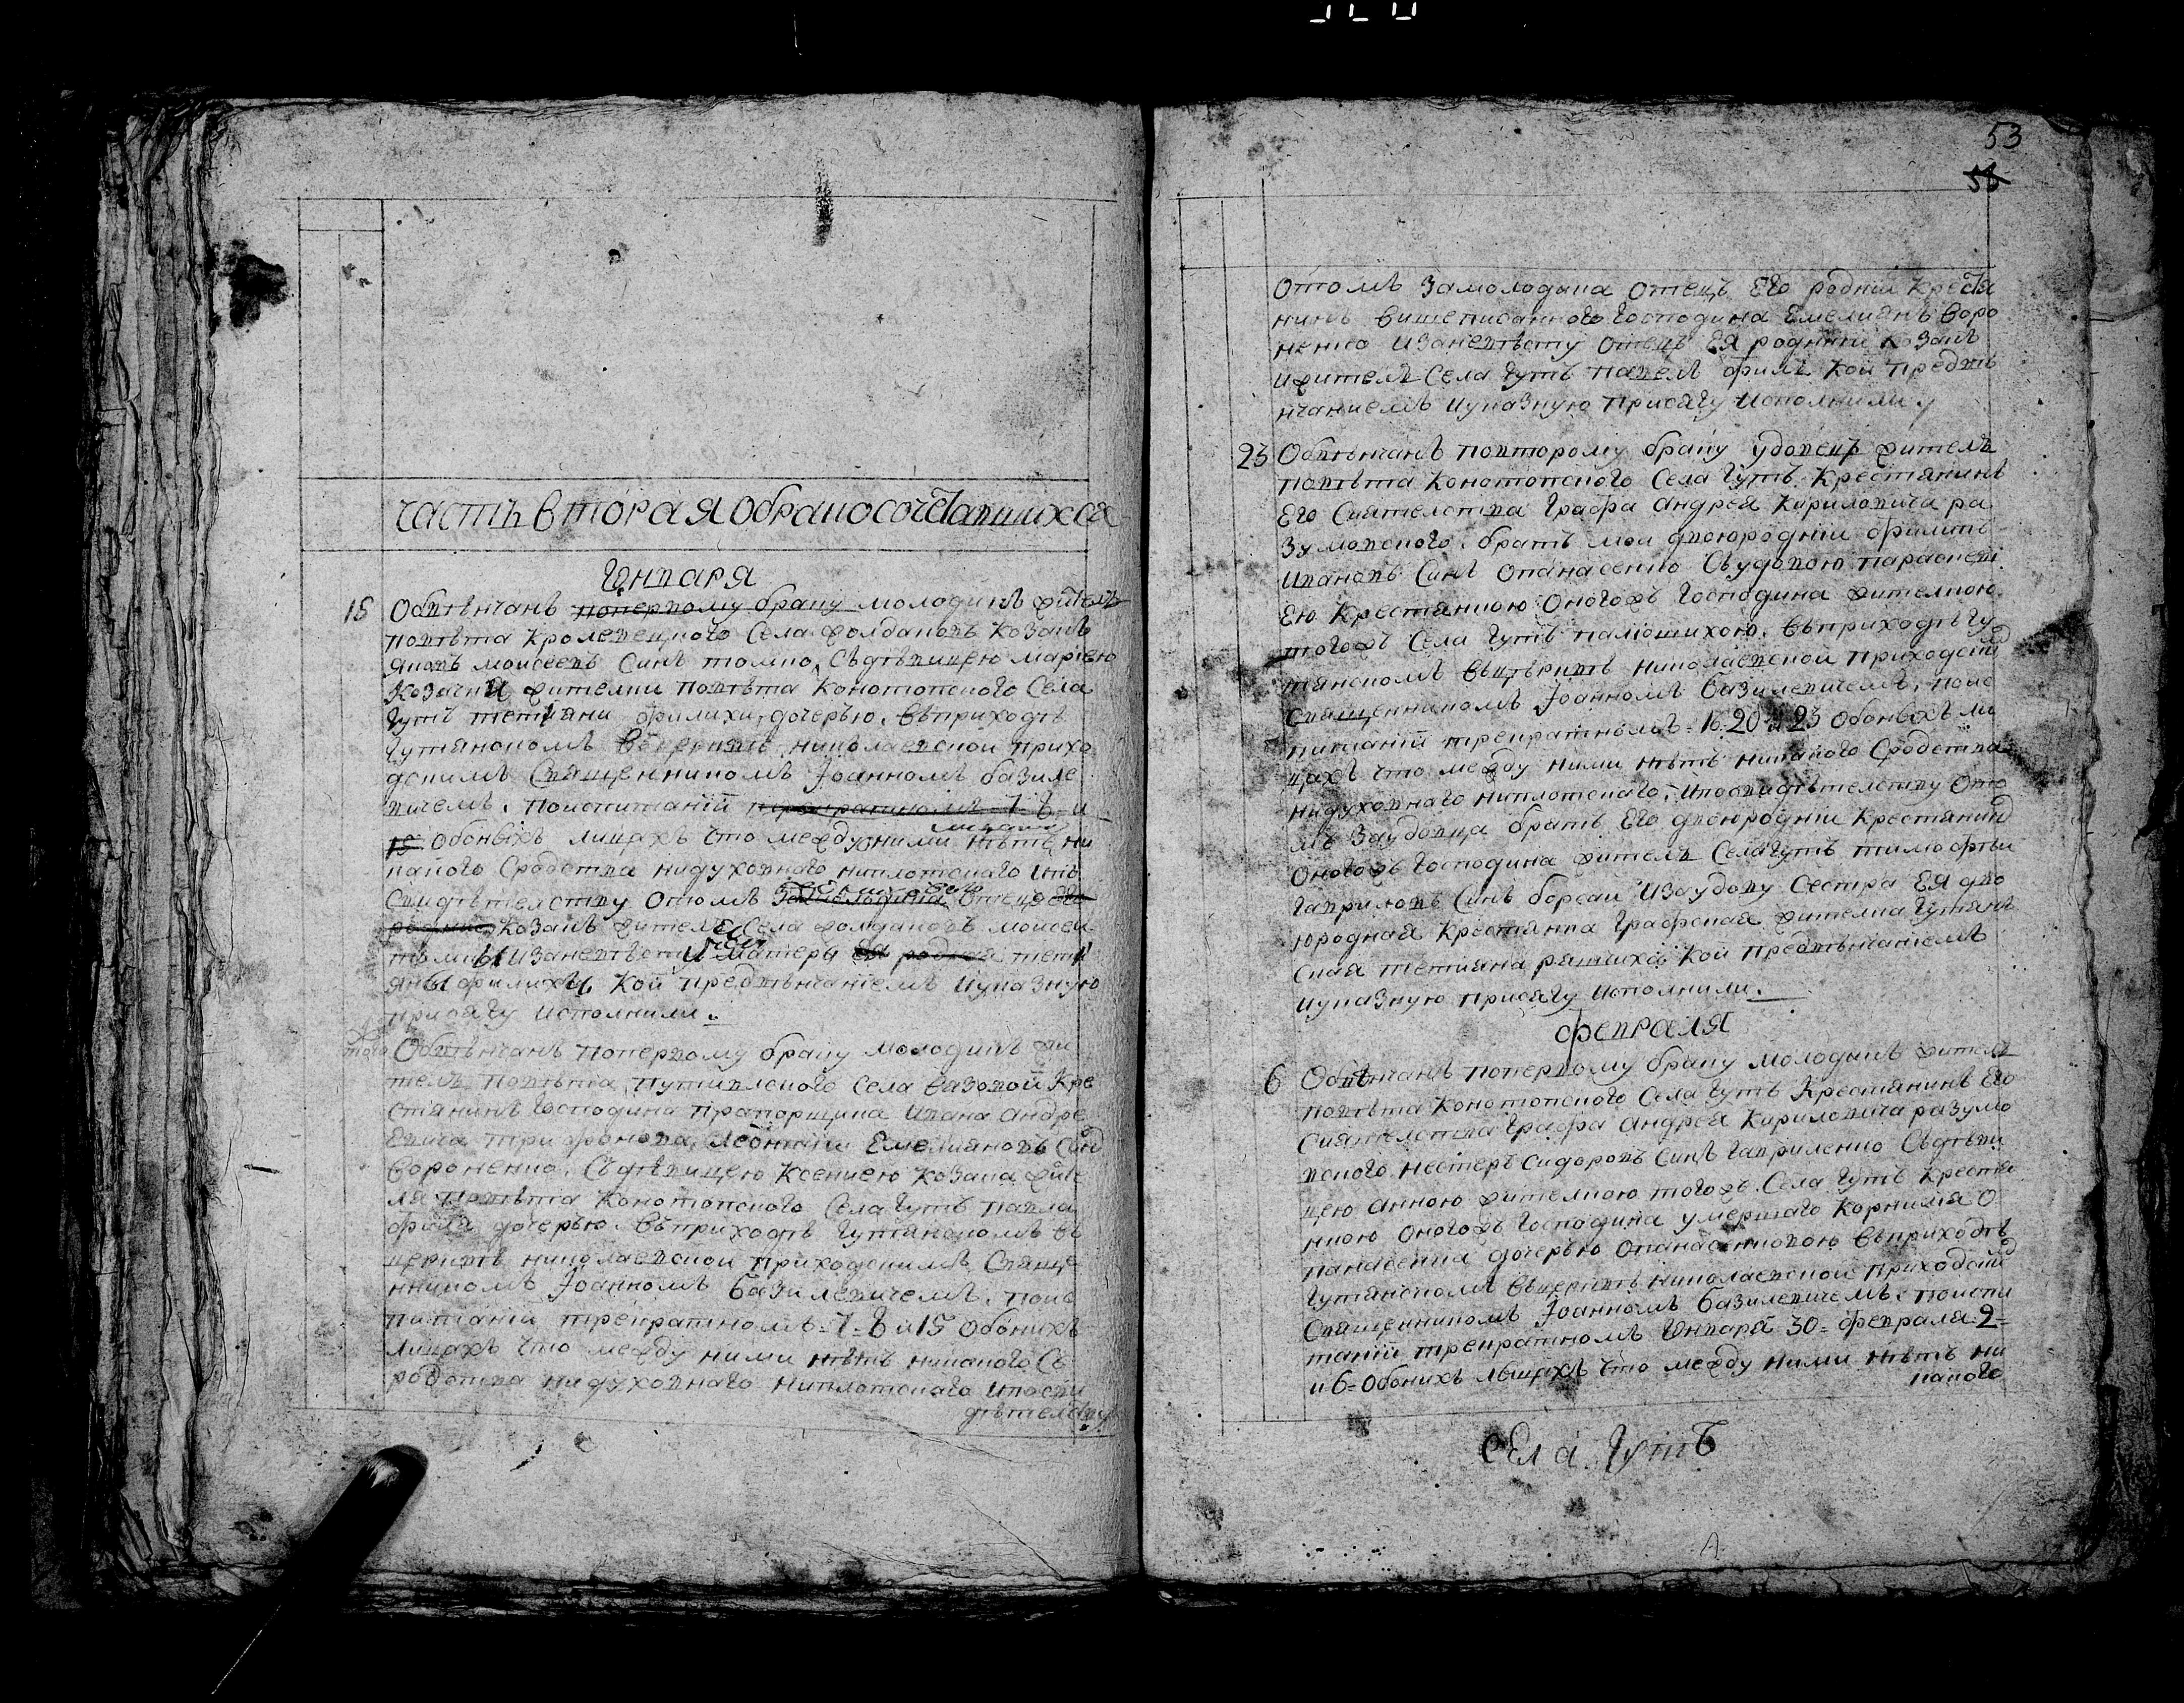 часть вторая обракосочетавшихся
Генваря
15 Обвѣнчанъ поперvому браку молодикъ жителъ
повѣта Кролевецкого Села жолдаковъ Козакъ
яковъ моисеевъ Синъ томко, Съдѣвицею мариею
Козачки жителки повѣта Конотопского Села
Гутъ тетіяни филихи, дочерью, въприходѣ
Гутянскомъ въцерквѣ николаевской прихо
дскимъ Священникомъ Іоанномъ базиле
вичемъ, поиспитаній трократномъ 7 8 и
15 обоныхъ лицахъ что между ними нѣтъ ни
какого Сродства нидуховного ниплотскаго ипо
Свидѣтелству отомъ Замолодика Отецъ его
родніи Козакъ жителъ Села жолдаковъ моисеи
томко изаневѣсту матерь ея родная тети
яны филихи, Кои предвѣнчаніемъ иуказную
присягу исполнили.
того Обвѣнчанъ поперvому браку молодикъ жи
телъ повѣта путивлского Села вазовой Кре
стянинъ Господина прапорщика ивана андре
евича трифонова леонтіи Емелияновъ Синъ
вороненко, Съдѣвицею Ксениею Козака жите
ля повѣта Конотопского Села Гутъ павла
филя дочерью въприходѣ Гутянскомъ въ
церквѣ николаевской приходскимъ Свяще
нникомъ Іоанномъ базилевичемъ, поис
питаній трекратномъ 7 = 8 и 15 обонихъ
лицахъ что между ними нѣтъ никакого С
родства нидуховнаго ниплотскаго ипосви
дѣтелству
53
отомъ Замолодика Отецъ Его родніи Крестя
нинъ вишеписанного Господина Емелиянъ воро
ненко изаневѣсту отецъ Ея родніи Козакъ
ижителъ Села Гутъ павелъ филь Кои предвѣ
нчаниемъ иуказную присягу исполнили,
23 Обвѣнчанъ повторому браку удовецъ жителъ
повѣта Конотопского Села Гутъ Крестянинъ
Его Сиятелства Графа андрея Кириловича ра
зумовского. братъ мои двоюродніи филипъ
ивановъ Синъ опанасенко Съудовою параскеві
ею Крестянкою оногожъ Господина жителкою
тогожъ Села Гутъ палюшихою, въприходѣ Гу
тянскомъ въцерквѣ николаевской приходски
Священникомъ Іоанномъ базилевичемъ, поис
питаній трекратномъ = 16 = 20 и 23 обоныхъ ли
цахъ что между ними нѣтъ никакого Сродства
нидуховнаго ниплотскаго, ипосвидѣтелству ото
мъ Заудовца братъ Его двоюродніи Крестянинъ
оногожъ Господина жителъ Села Гутъ тимофѣи
Гавриловъ Синъ борсаи изаудову Сестра Ея дво
юродная Крестянка Графская жителка Гутян
ская тетияна Кои предвѣнчаніемъ
иуказную присягу исполнили.
февраля
6 Обвѣнчанъ поперvому браку молодикъ жителъ
повѣта Конотопского Села Гутъ Крестянинъ Его
Сиятелства Графа андрея Кириловича разумо
вского нестеръ Сидоровъ Синъ Гавриленко Съдѣви
цею анною жителкою тогожъ Села Гутъ Крестя
нкою оногожъ Господина умершаго Корнилія о
панасенка дочерью опанасенковою въприходѣ
Гутянскомъ въцерквѣ николаевской приходски
Священникомъ Іоанномъ базилевичемъ, поиспи
таній трекратномъ Генваря 30 = февраля 2 =
и 6 = обонихъ лыцахъ что между ними нѣтъ ни
какого
села Гутъ